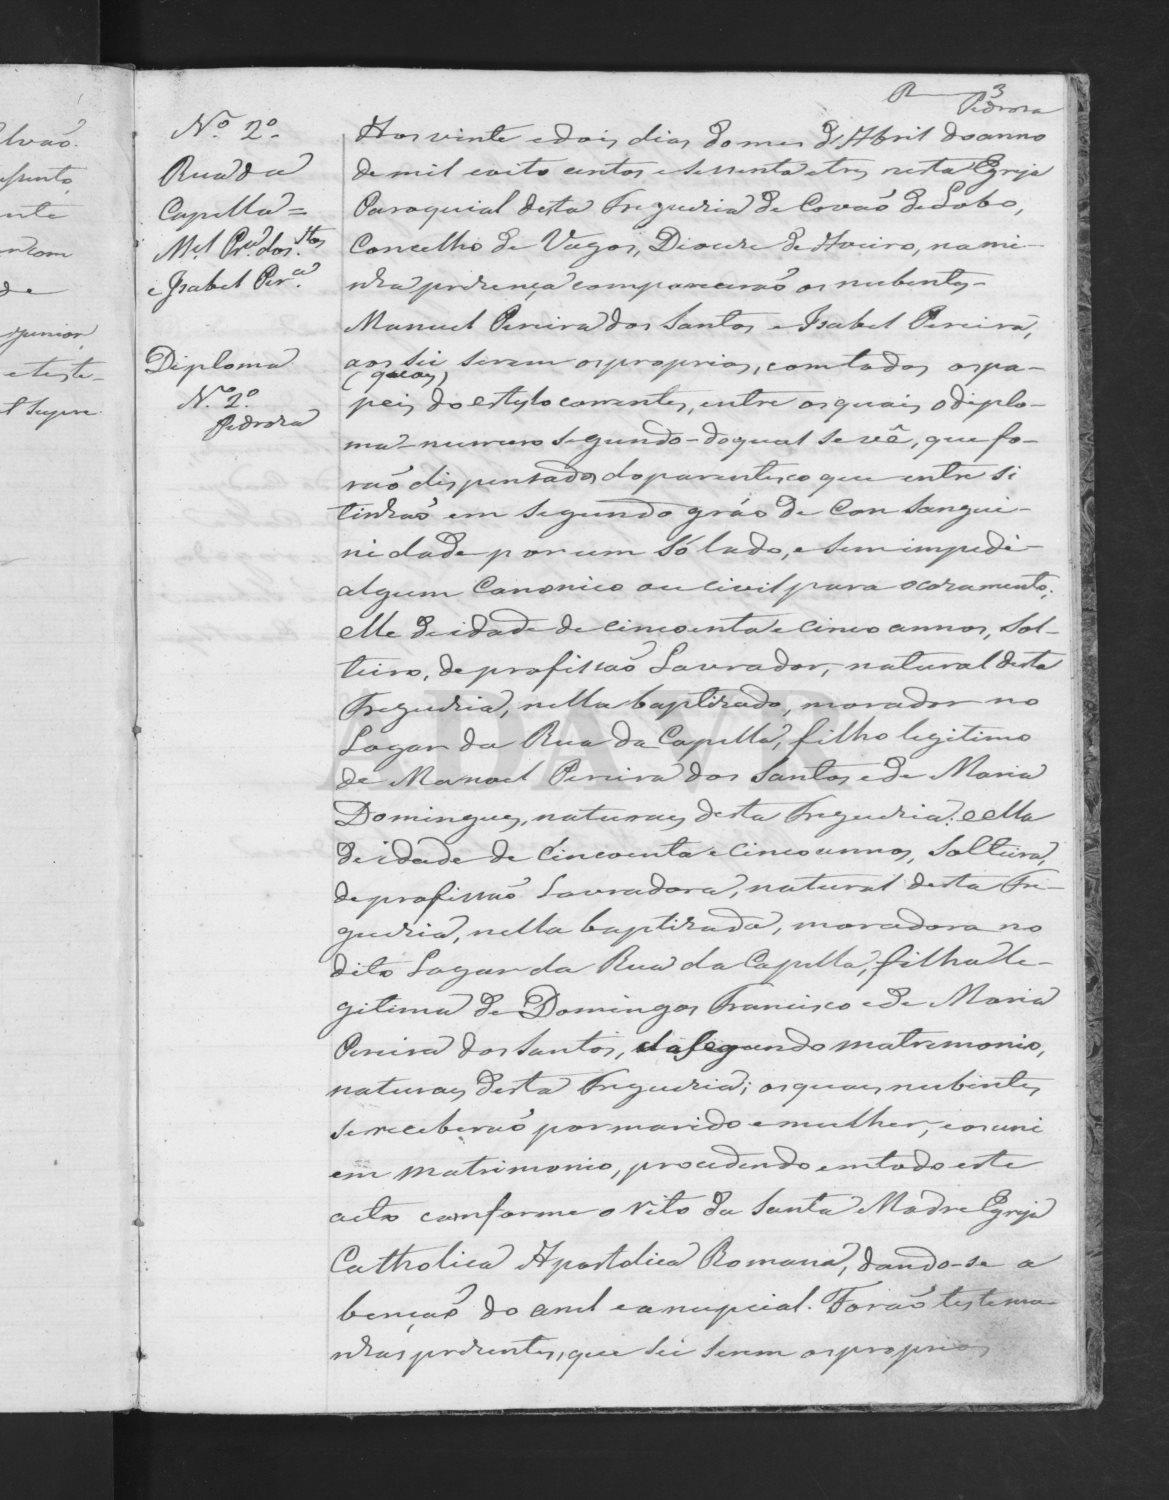 3
R Pedroza
lvaõ.
sento,
nte
ncom
de
junior,
e teste-
l supra.
Nº 2º
Rua da
Capella =
Mel Prª dos Stos
e Isabel Perª
Diploma
Nº 2º
Pedroza
Aos vinte e dois dias do mes de Abril do anno
de mil e oito centos e sessenta e tres nesta Egreja
Paroquial desta Freguezia de Covaõ de Lobo,
Concelho de Vagos, Diocese de Aveiro, na mi-
nha prezença compareceraõ os nubentes
Manuel Pereira dos Santos e Isabel Pereira,
aos sei serem os proprios, com todos os pa-
(quaes)
peis do estylo correntes, entre os quais o diplo-
ma - numero segundo - do qual se vê, que fo-
raõ dispensados do parentesco que entre si
tinhaõ em segundo gráo de Consangui-
nidade por um só lado, e sem impedi-
algum Canonico ou civil para o cazamento;
elle de idade de cincoenta e cinco annos, sol-
teiro, de profissaõ Lavrador, natural desta
Freguezia, nella baptizado, morador no
Logar da Rua da Capella, filho legitimo
de Manoel Pereira dos Santos e de Maria
Domingues, naturaes desta Freguezia: e ella
de idade de cincoenta e cinco annos, Solteira,
de profissaõ Lavradora, natural desta Fre-
guezia, nella baptizada, moradora no
dito Logar da Rua da Capella, filha le-
gitima de Domingos Francisco e de Maria
Pereira dos Santos, do segundo matrimonio,
naturaes desta Freguezia; os quaes nubentes
se receberaõ por marido e mulher, e os uni
em matrimonio, procedendo em todo este
acto conforme o rito da Santa Madre Egreja
Catholica Apostolica Romana, dando-se a
bençaõ do anel e a nupcial. Foraõ testemu-
nhas prezentes, que sei serem os proprios
ADAVR